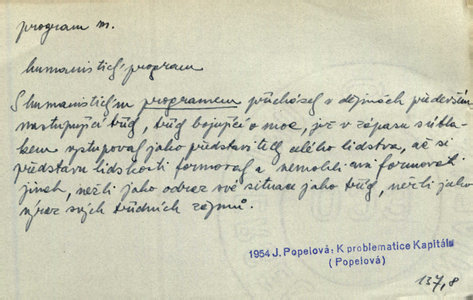 program m.
humanistický program
S humanistickým programem přicházely v dějinách především
nastupující třídy, třídy bojující o moc, jež v zápasu s útlakem
vystupovaly jako představitelky celého lidstva, ač si
představu lidskosti formovaly a nemohly ani formovat
jinak, nežli jako odraz své situace jako třídy, nežli jako
výraz svých třídních zájmů.
1954 J. Popelová: K problematice Kapitálu
(Popelová)
137,8